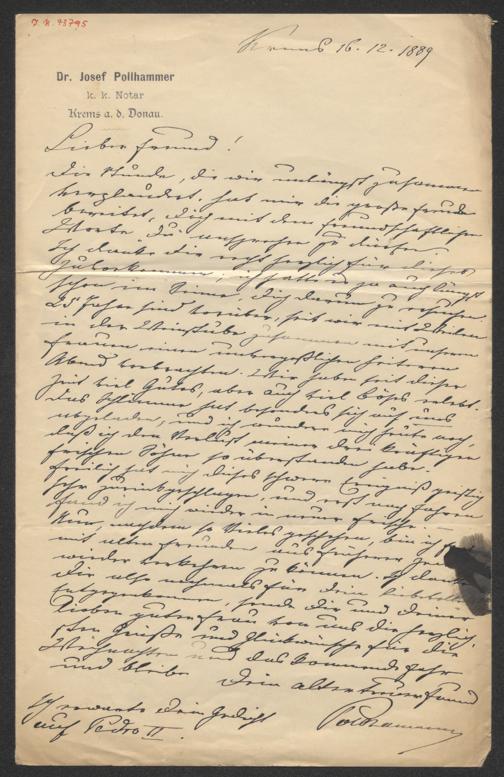 J. N. 43795
Krems 16.12.1889
Dr. Josef Pollhammer
k. k. Notar
Krems a. d. Donau.
Lieber Freund!
Die Stunde, die wir unlängst zusammen
verplaudert, hat mir die große Freude
bereitet, Dich mit dem freundschaftlichen
Worte Du ansprechen zu dürfen.
Ich danke Dir recht herzlich für dieses
Zuvorkommen, ich hatte es ja auch längst
schon im Sinne, Dich darum zu ersuchen.
25 Jahre sind vorüber, seit wir mit
in der Weinstube zusammen mit unsern
Frauen einen unvergeßlichen heiteren
Abend verbrachten. Wir haben seit dieser
Zeit viel Gutes, aber auch viel Böses erlebt.
Das Schlimme hat besonders sich auf uns
abgeladen, und ich wundre mich heute noch,
daß ich den Verlust meiner drei kräftigen
frischen Söhne so überstanden habe.
Freilich hat mich dieses schwere Ereigniß geistig
sehr zurückgeschlagen, und erst nach Jahren
fand ich mich wieder in neuer Frische. –
Nun, nachdem so Vieles geschehen, bin ich
mit alten Freunden aus früherer Zeit
wieder verkehren zu können. Ich danke
Dir also nochmals für Dein liebevolles
Entgegenkommen, sende Dir und Deiner
lieben guten Frau von uns die herzlich-
sten Grüße und Glückwünsche für die
Weihnachten und das kommende Jahr
und bleibe Dein alter treuer Freund
Pollhammer
Ich erwarte Dein Gedicht
auf Pedro II.